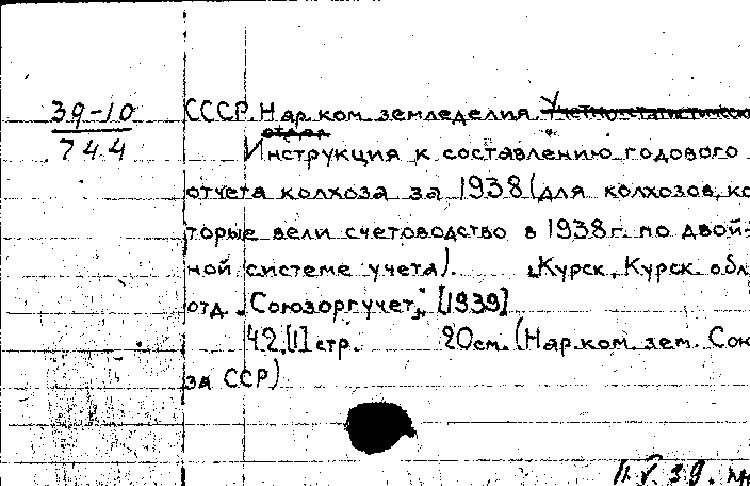 39-10
744
СССР. Нар. ком. земледелия. Учетно-статистическ
отдел
Инструкция к составлению годового
отчета колхоза за 1938 (для колхозов, ко
торые вели счетоводство в 1938 г. по двой-
ной системе учета). Курск, Курск. обл.
отд. „Союзоргучет", [1939]
42,[1] стр. 20 см. (Нар. ком. зем. Сою
за ССР)
11.V.39.